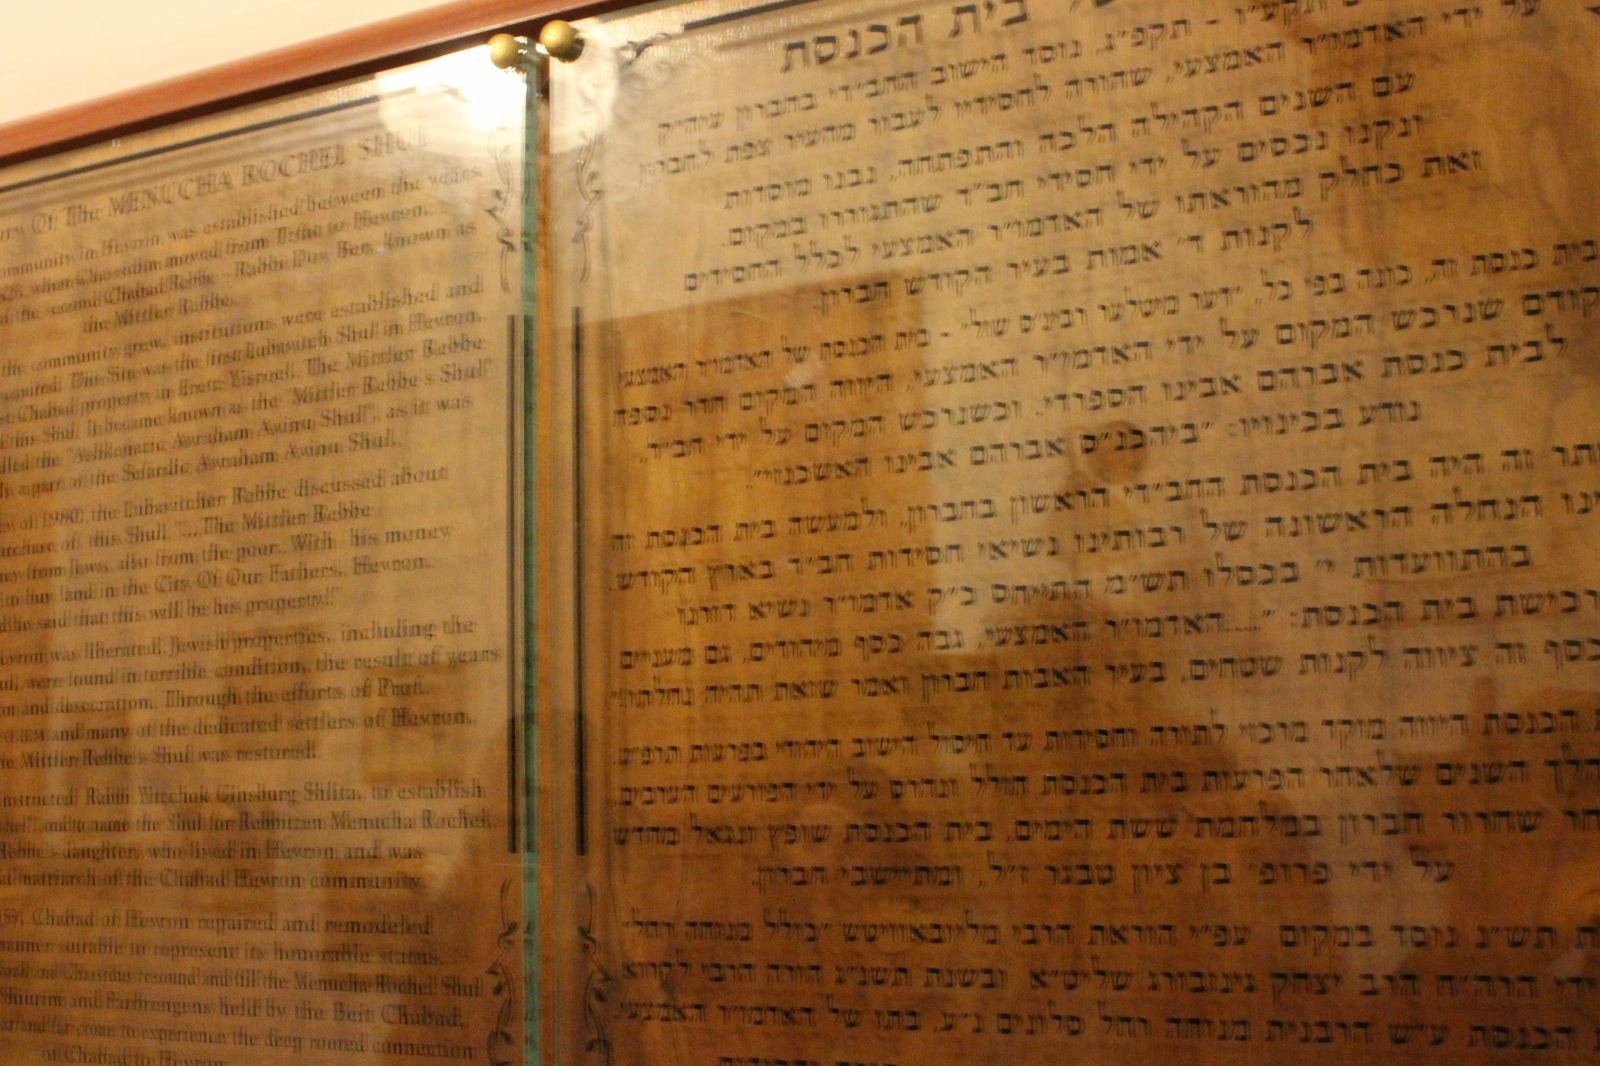 Of The MENUCHA ROCHEL SHUL
in Hevron was established between the years
when Chassidim moved from Tzfat to Hevron,
of the second Chabad Rebbe - Rabbi Dov Ber, known as
the Mittler Rebbe.
the community grew, institutions were established and
This Site was the first Lubavitch Shul in Hevron,
Chabad property in Eretz Yisroel. The Mittler Rebbe
this Shul. It became known as the "Mittler Rebbe's Shul"
the "Ashkenazic Avraham Avinu Shul", as it was
a part of the Sefardic Avraham Avinu Shul.
of 1980, the Lubavitcher Rebbe discussed about
of this Shul. "....The Mittler Rebbe
from Jews, also from the poor.. With his money
to buy land in the City Of Our Fathers, Hevron.
he said that this will be his property!!"
was liberated, Jewish properties, including the
were found in terrible condition, the result of years
and desecration. Through the efforts of Prof.
and many of the dedicated settlers of Hevron,
Mittler Rebbe's Shul was restored!
Rabbi Yitzchok Ginsburg Shlita, to establish
and to name the Shul for Rebbitzen Menucha Rochel,
Rebbe's daughter, who lived in Hevron and was
matriarch of the Chabad Hevron community.
Chabad of Hevron repaired and remodeled
manner suitable to represent its honorable status.
and Chassidus resound and fill the Menucha Rochel Shul
Shiurim and Farbrengens held by the Beit Chabad,
and far come to experience the deep rooted connection
of Chabad to Hevron
בית הכנסת
תקפ"ג, נוסד הישוב החב"די בחברון עיה"ק
על ידי האדמו"ר האמצעי, שהורה לחסידיו לעבור מהעיר צפת לחברון
עם השנים הקהילה הלכה והתפתחה, נבנו מוסדות
ונקנו נכסים על ידי חסידי חב"ד שהתגוררו במקום.
זאת כחלק מהוראתו של האדמו"ר האמצעי לכלל החסידים
לקנות ד' אמות בעיר הקודש חברון.
בית כנסת זה, כונה בפי כל, "דער מיטלער רבינ'ס שול" - בית הכנסת של האדמו"ר האמצעי
קודם שנרכש המקום על ידי האדמו"ר האמצעי, היווה המקום חדר נספח
לבית כנסת אברהם אבינו הספרדי. וכשנרכש המקום על ידי חב"ד,
נודע בכינויו: "ביהכנ"ס אברהם אבינו האשכנזי"
זה היה בית הכנסת החב"די הראשון בחברון, ולמעשה בית הכנסת זה
הנחלה הראשונה של רבותינו נשיאי חסידות חב"ד בארץ הקודש.
בהתוועדות י' בכסלו תש"מ התייחס כ"ק אדמו"ר נשיא דורנו
רכישת בית הכנסת: "....האדמו"ר האמצעי, גבה כסף מיהודים, גם מעניים
כסף זה ציווה לקנות שטחים, בעיר האבות חברון ואמר שזאת תהיה נחלתו!"
הכנסת היווה מוקד מרכזי לתורה וחסידות עד חיסול הישוב היהודי בפרעות תרפ"ט.
השנים שלאחר הפרעות בית הכנסת חולל ונהרס על ידי הפורעים הערבים.
שחרור חברון במלחמת ששת הימים, בית הכנסת שופץ ונגאל מחדש
על ידי פרופ' בן ציון טבגר ז"ל, ומתיישבי חברון.
תש"נ נוסד במקום עפ"י הוראת הרבי מליובאוויטש "כולל מנוחה רחל"
ידי הרה"ח הרב יצחק גינזבורג שליט"א ובשנת תשנ"ג הורה הרבי לקרוא
הכנסת ע"ש הרבנית מנוחה רחל סלונים נ"ע, בתו של האדמו"ר האמצעי.